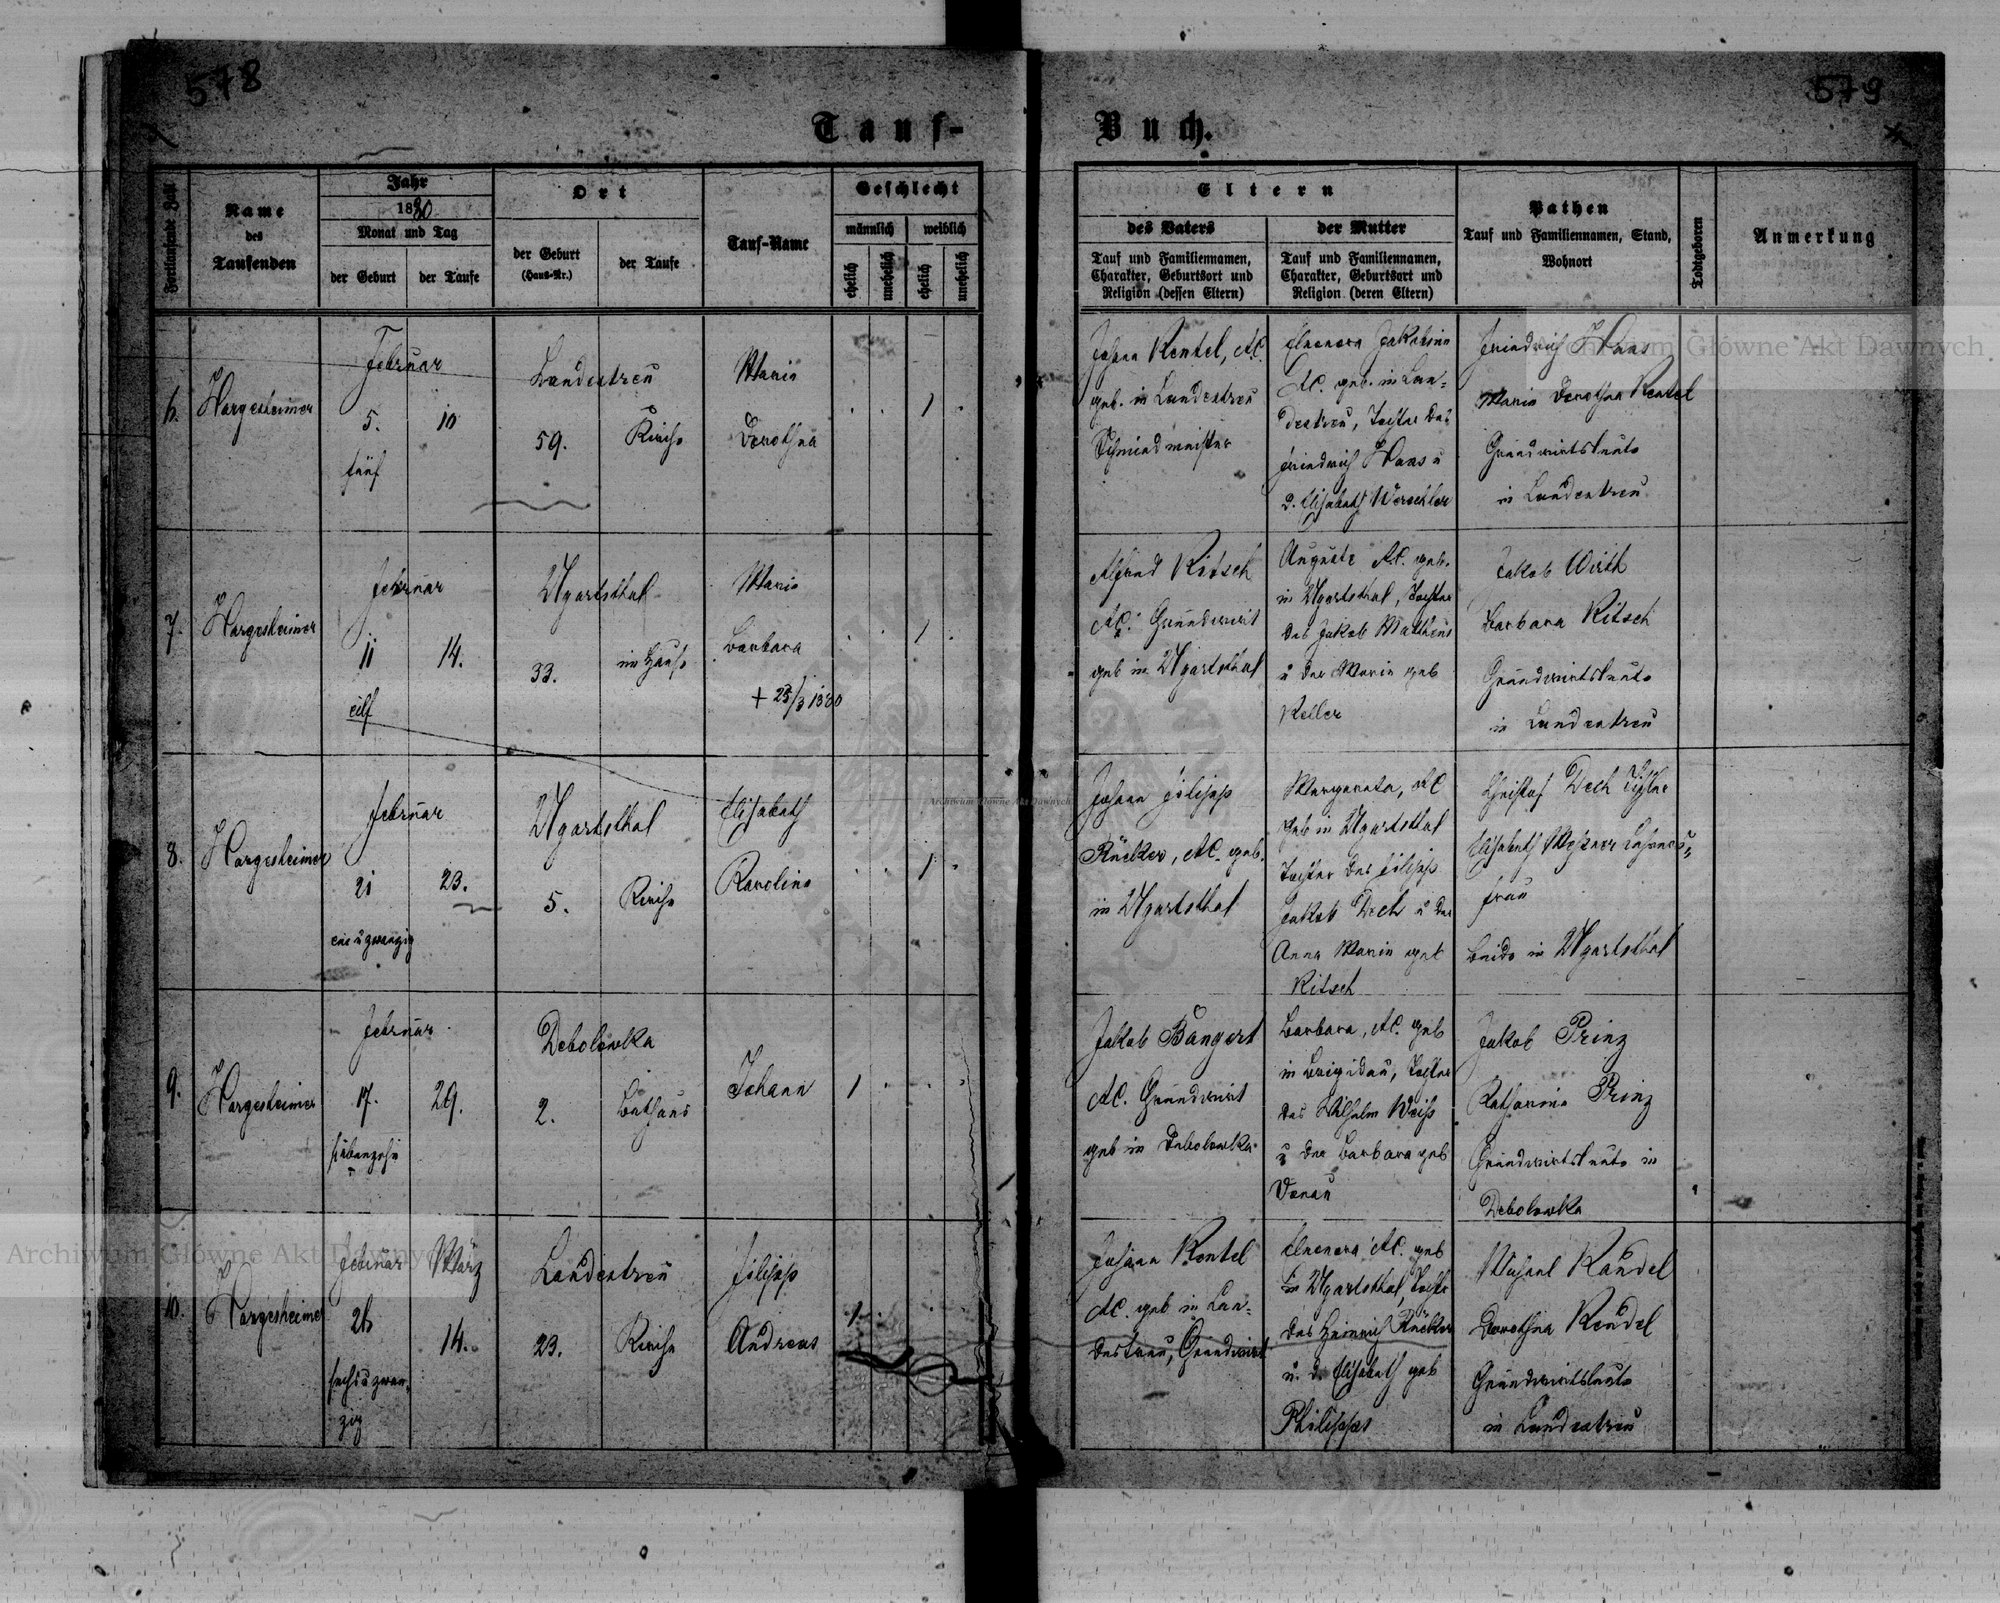 578
579
Tauf-
Buch.
Fortlaufende Zahl
Name
des
Taufenden
Jahr
1880
Monat und Tag
der Geburt
der Taufe
Ort
der Geburt
(Haus-Nr.)
der Taufe
Tauf-Name
Geschlecht
männlich
weiblich
ehelich
unehelich
ehelich
unehelich
Eltern
des Vaters
Tauf und Familiennamen,
Charakter, Geburtsort und
Religion (dessen Eltern)
der Mutter
Tauf und Familiennamen,
Charakter, Geburtsort und
Religion (deren Eltern)
Pathen
Tauf und Familiennamen, Stand,
Wohnort
Todtgeboren
Anmerkung
6.
Hargesheimer
Februar
5.
10
fünf
Landestreu
59.
Kirche
Maria
Dorothea
1
Johann Rentel, AC.
geb. in Landestreu
Schmiedmeister
Eleonora Jakobine
AC. geb. in Lan=
destreu, Tochter des
Friedrich Haas u
d. Elisabeth
Friedrich Haas
Maria Dorothea Rentel
Grundwirtsleute
in Landestreu
7.
Hargesheimer
Februar
11
14.
eilf
Ugartsthal
33.
im Hause
Maria
Barbara
+ 25/3 1880
1
Ritsch
AC. Grundwirt
geb in Ugartsthal
Auguste AC. geb.
in Ugartsthal, Tochter
des Jakob Mattheus
u der Maria geb
Keller
Jakob Wirth
Barbara Ritsch
Grundwirtsleute
in Landestreu
8.
Hargesheimer
Februar
21
23.
ein u zwanzig
Ugartsthal
5.
Kirche
Elisabeth
Karoline
1
Johann Filipp
Rücker, AC. geb.
in Ugartsthal
Margareta, AC
geb in Ugartsthal
Tochter des Filipp
Jakob Dech u der
Anna Maria geb
Ritsch
Christof Dech Tischler
Elisabeth
frau
beide in Ugartsthal
9.
Hargesheimer
Februar
17.
29.
siebenzehn
Debolowka
2.
Bethaus
Johann
1
Jakob Bangert
AC. Grundwirt
geb in Debolowka
Barbara, AC. geb
in Brigidau, Tochter
des Wilhelm Weiss
u der Barbara geb
Jakob Prinz
Katharina Prinz
Grundwirtsleute in
Debolowka
10.
Hargesheimer
Februar
März
26
14.
sechs u zwan=
zig
Landestreu
23.
Kirche
Filipp
Andreas
1
Johann Rentel
AC. geb in Lan=
destreu, Grundwirt
Eleonora AC. geb
in Ugartsthal, Tochter
des Heinrich Rücker
u. d. Elisabeth geb
Philippes
Kandel
Dorothea Rendel
Grundwirtsleute
in Landestreu
Archiwum Główne Akt Dawnych
Archiwum Główne Akt Dawnych
Archiwum Główne Akt Dawnych